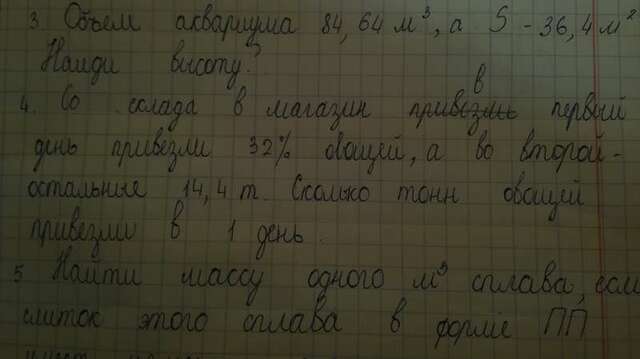 3 Объем аквариума 84,64 м³, а S - 36,4 м²
Найди высоту?
в
4. Со склада в магазин привезли первый
день привезли 32% овощей, а во второй -
остальные 14,4 т. Сколько тонн овощей
привезли в 1 день.
5 Найти массу одного м³ сплава, если
слиток этого сплава в форме ПП